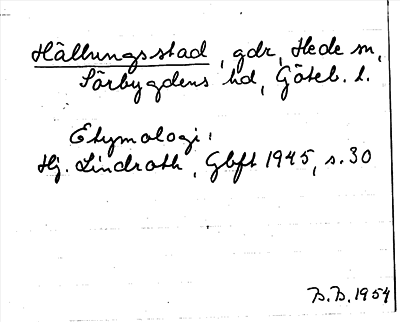 Hällungsstad, gdr, Hede sn,
Sörbygdens hd, Göteb. l.
Etymologi:
Hj. Lindroth, Gbft 1945, s. 30
B.B. 1954